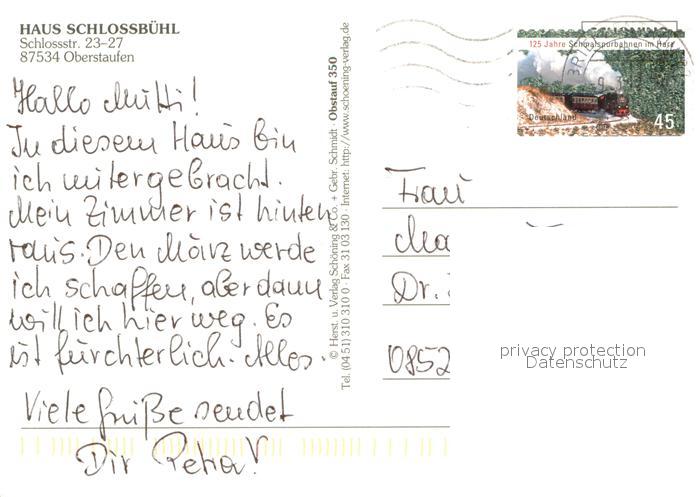 HAUS SCHLOSSBÜHL
Schlossstr. 23–27
87534 Oberstaufen
Hallo Mutti!
In diesem Haus bin
ich untergebracht.
Mein Zimmer ist hinten
raus. Den März werde
ich schaffen, aber dann
will ich hier weg. Es
ist fürchterlich. Alles.
Viele Grüße sendet
Dir Petra!
© Herst. u. Verlag Schöning & Co. + Gebr. Schmidt · Obstauf 350
Tel. (04 51) 310 310 0 · Fax 31 03 130 · Internet: http://www.schoening-verlag.de
125 Jahre Schmalspurbahnen im Harz
Deutschland
45
Frau
Ma
Dr.
0852
privacy protection
Datenschutz